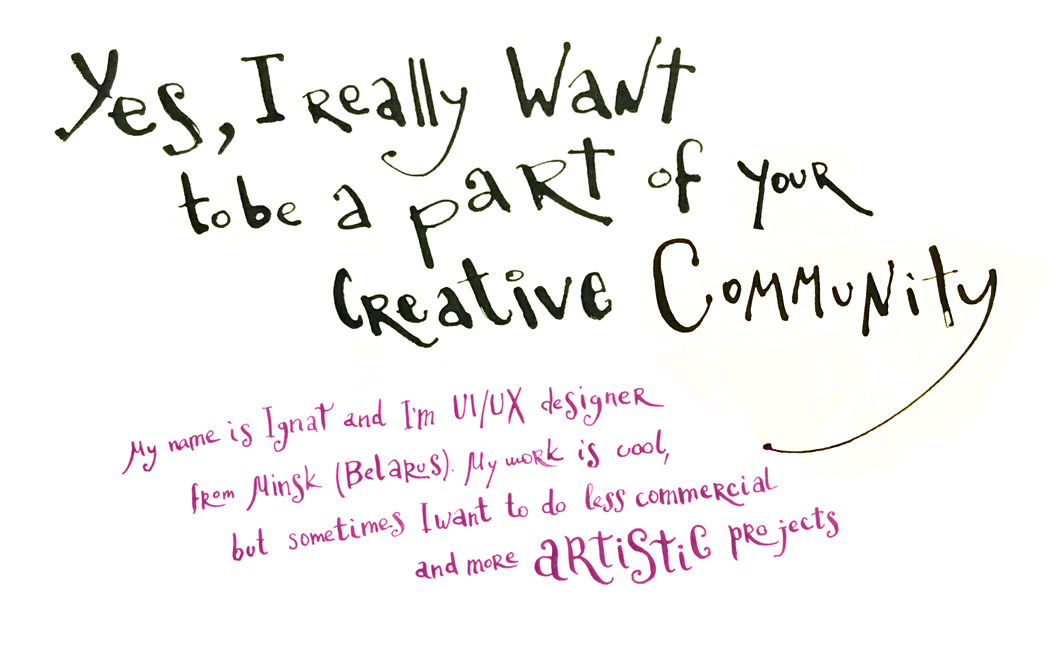 Yes, I really Want
to be a part of your
Creative Community
My name is Ignat and I'm UI/UX designer
from Minsk (Belarus). My work is cool,
but sometimes I want to do less commercial
and more artistic projects